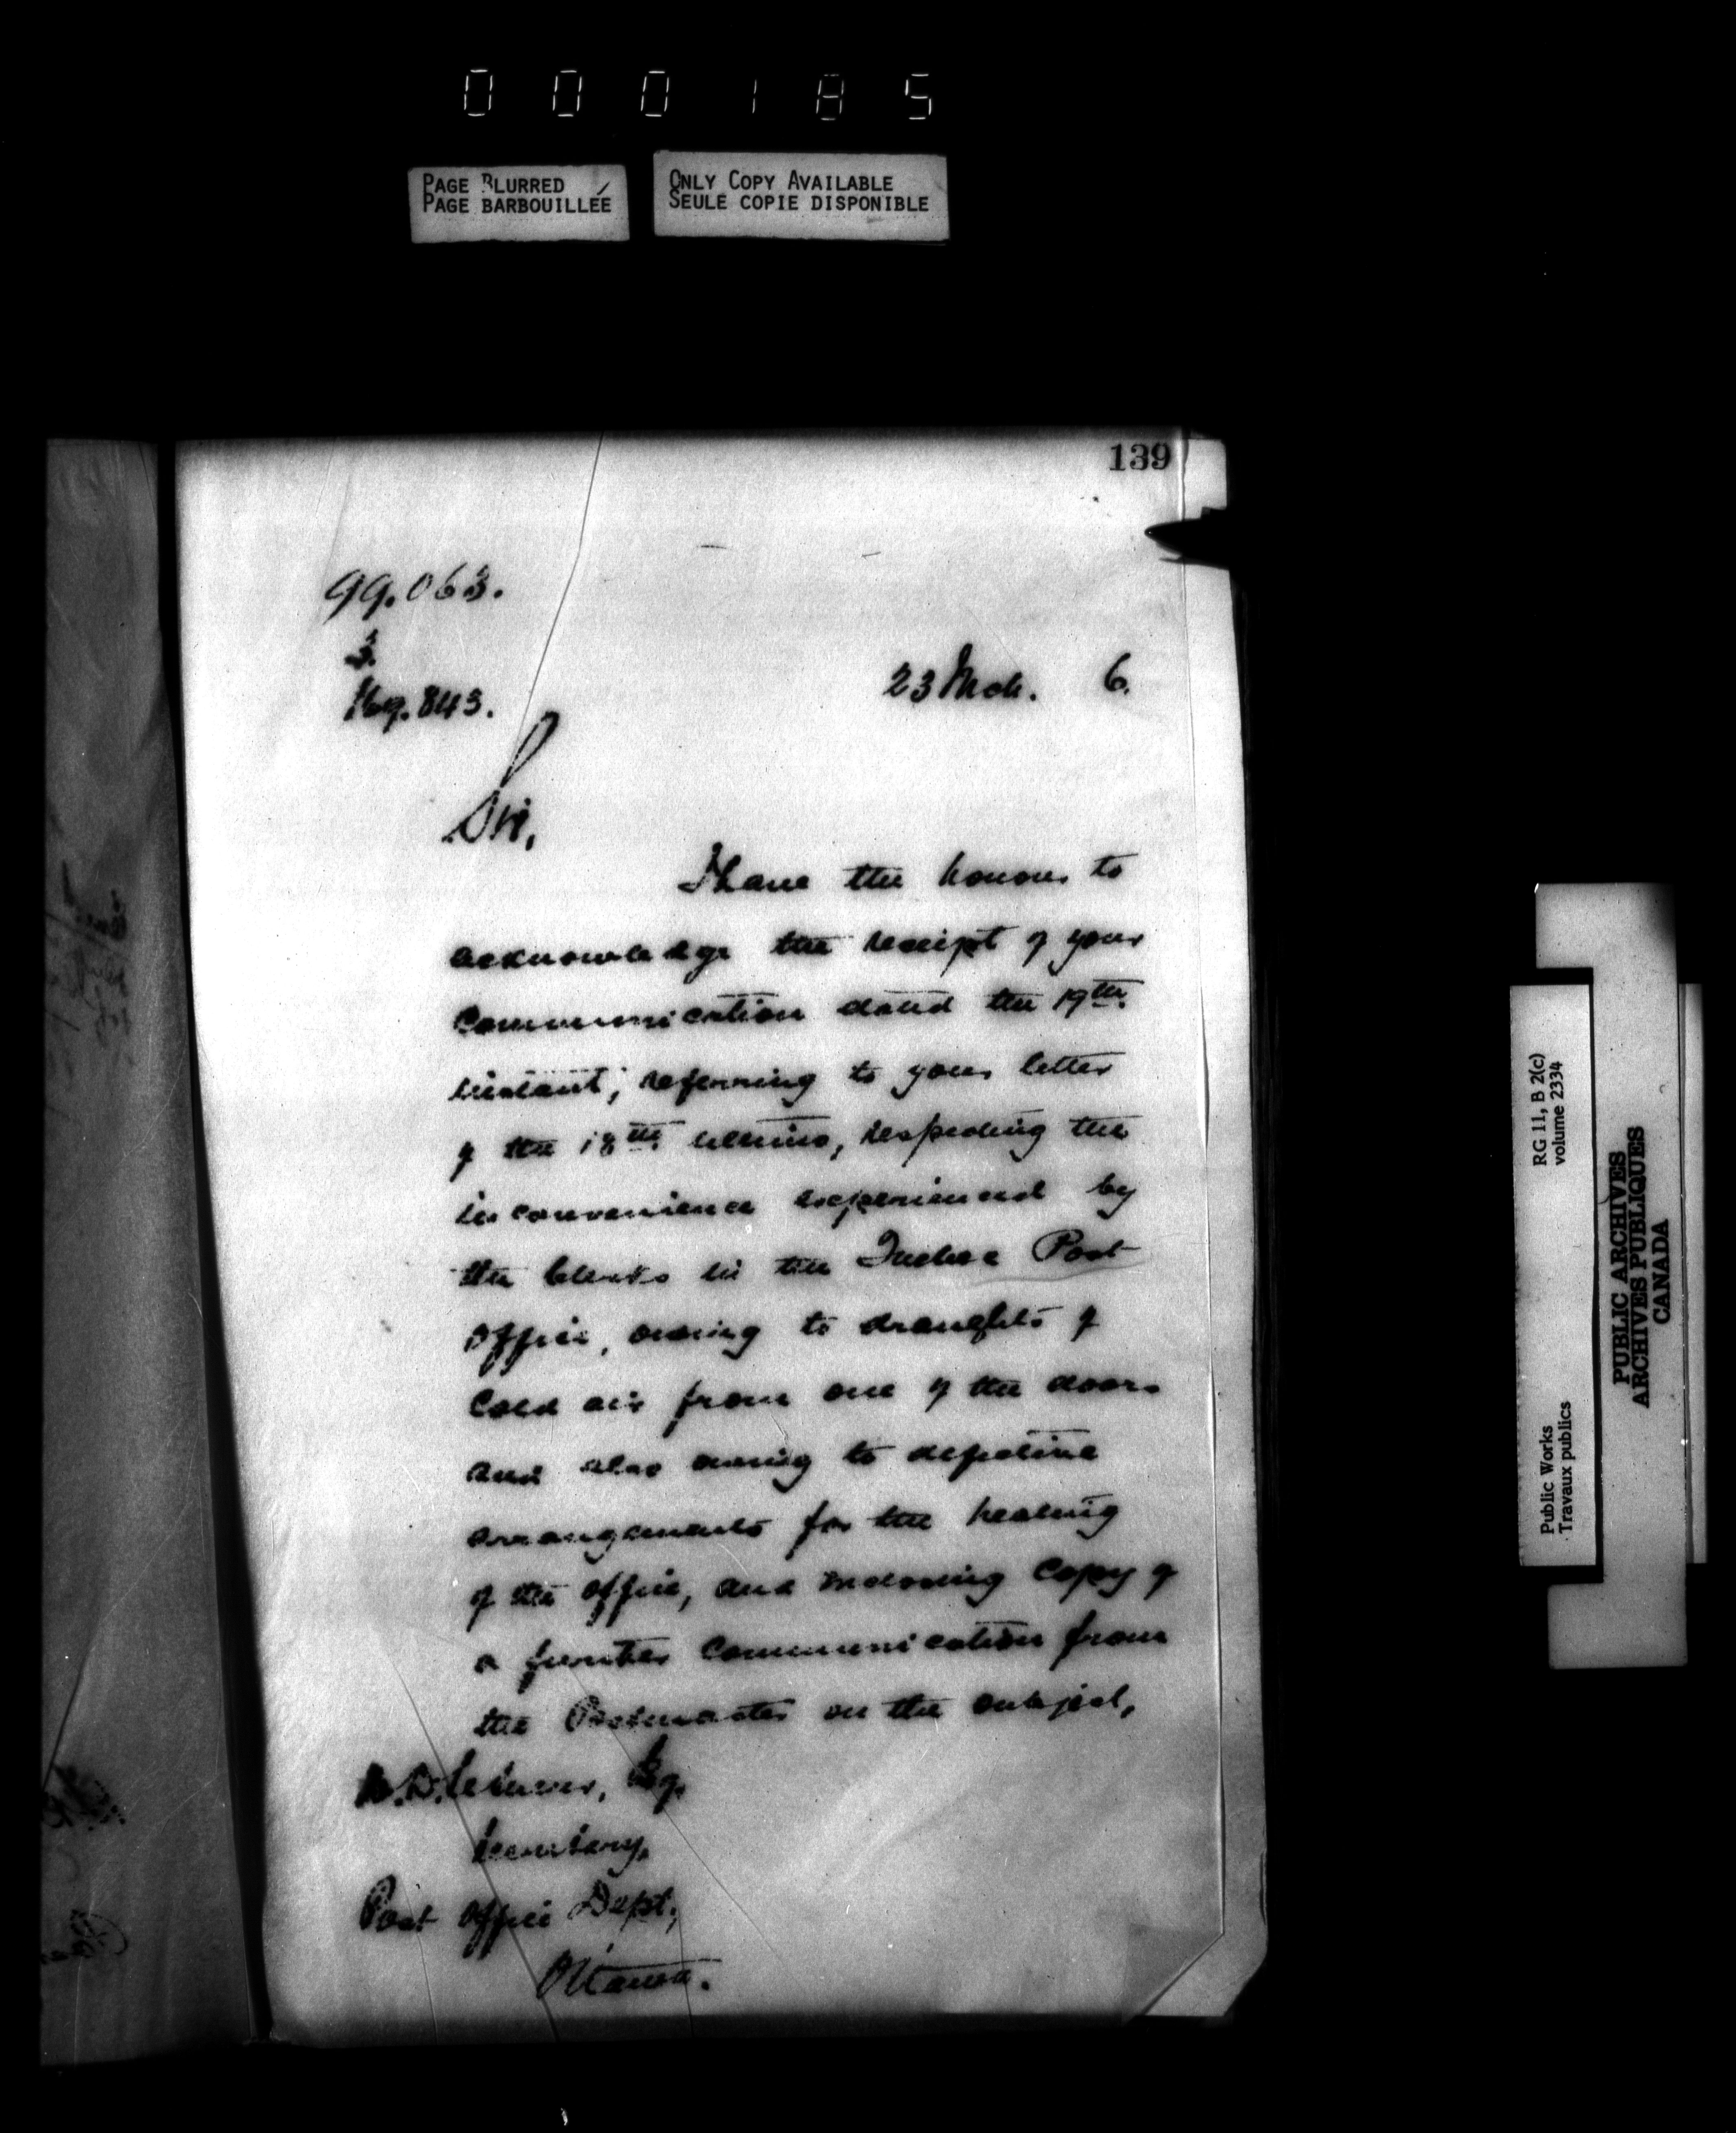 000185
PAGE BLURRED
PAGE BARBOUILLÉE
ONLY COPY AVAILABLE
SEULE COPIE DISPONIBLE
139
99.063.
3.
843.
23 Mch. 6.
Sir,
I have the honour to
acknowledge the receipt of your
communication dated the 19th
instant, referring to your letter
of the 18th ultimo, respecting the
inconvenience experienced by
the Clerks in the Quebec Post
Office, owing to draughts of
Cold air from one of the doors
and also owing to defective
arrangements for the heating
of the office, and enclosing Copy of
a further Communication from
the Postmaster on the subject,
Esq.
Secretary,
Post Office Dept.,
Ottawa.
RG 11, B 2(c)
volume 2334
Public Works
Travaux publics
PUBLIC ARCHIVES
ARCHIVES PUBLIQUES
CANADA